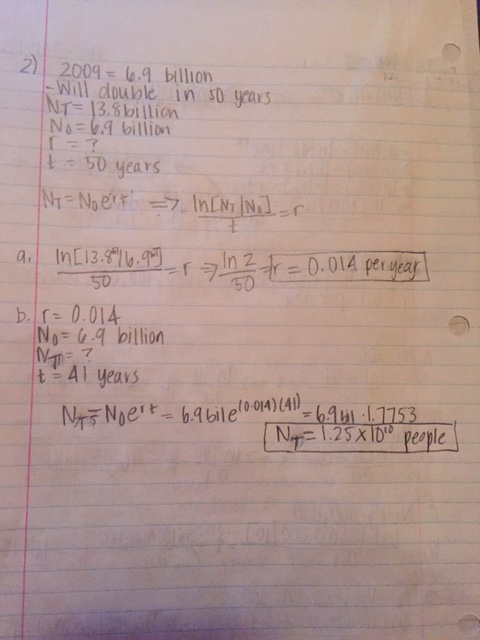 2) 2009 = 6.9 billion
- Will double in 50 years
NT = 13.8 billion
N0 = 6.9 billion
r = ?
t = 50 years
NT = N0e^rt => ln[NT/N0]/t = r
a. ln[13.8/6.9]/50 = r => ln 2/50 = r = 0.014 per year
b. r = 0.014
N0 = 6.9 billion
NT = ?
t = 41 years
NT = N0e^rt = 6.9bil e^(0.014)(41) = 6.9bil · 1.7753
NT = 1.25 x 10^10 people